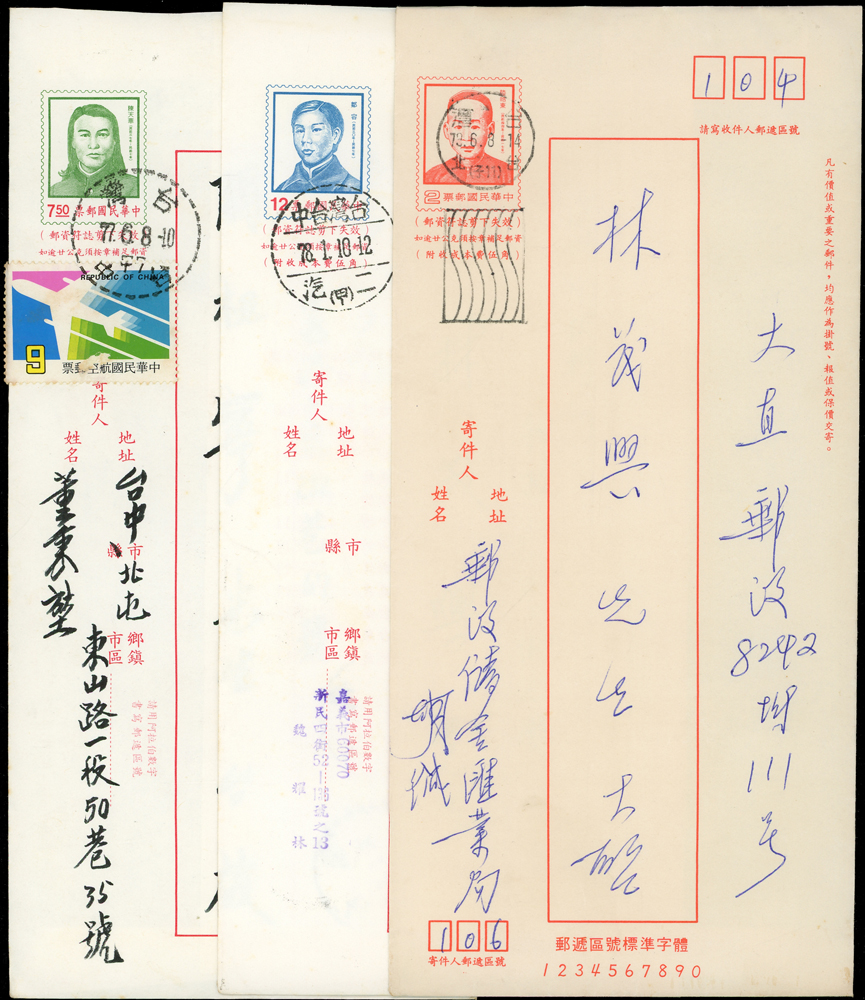 陳天華
7.50
票郵國民華中
(效失下剪誌符資郵)
如逾廿公克須按章補足郵資
台灣
77.6.8-10
台中
REPUBLIC OF CHINA
9
票郵空航國民華中
寄件人
地址
姓名
市
縣
鄉鎮
市區
請用阿拉伯數字
書寫郵遞區號
台中北屯
東山路一段50巷35號
鄒容
12
票郵國民華中
(效失下剪誌符資郵)
如逾廿公克須按章補足郵資
(附收成本費伍角)
中台灣台
78.1.10.12
汽(甲)二
寄件人
地址
姓名
市
縣
鄉鎮
市區
請用阿拉伯數字
書寫郵遞區號
嘉義市60070
新民四街52-136號之13
魏耀林
2
票郵國民華中
(效失下剪誌符資郵)
如逾廿公克須按章補足郵資
(附收成本費伍角)
台灣
73.6.8-14
台北
104
請寫收件人郵遞區號
凡有價值或重要之郵件,均應作為掛號、報值或保價交寄。
大直郵政8242附111号
林茂興先生大啟
寄件人
地址
姓名
郵政儲金匯業局
胡城
106
寄件人郵遞區號
郵遞區號標準字體
1234567890